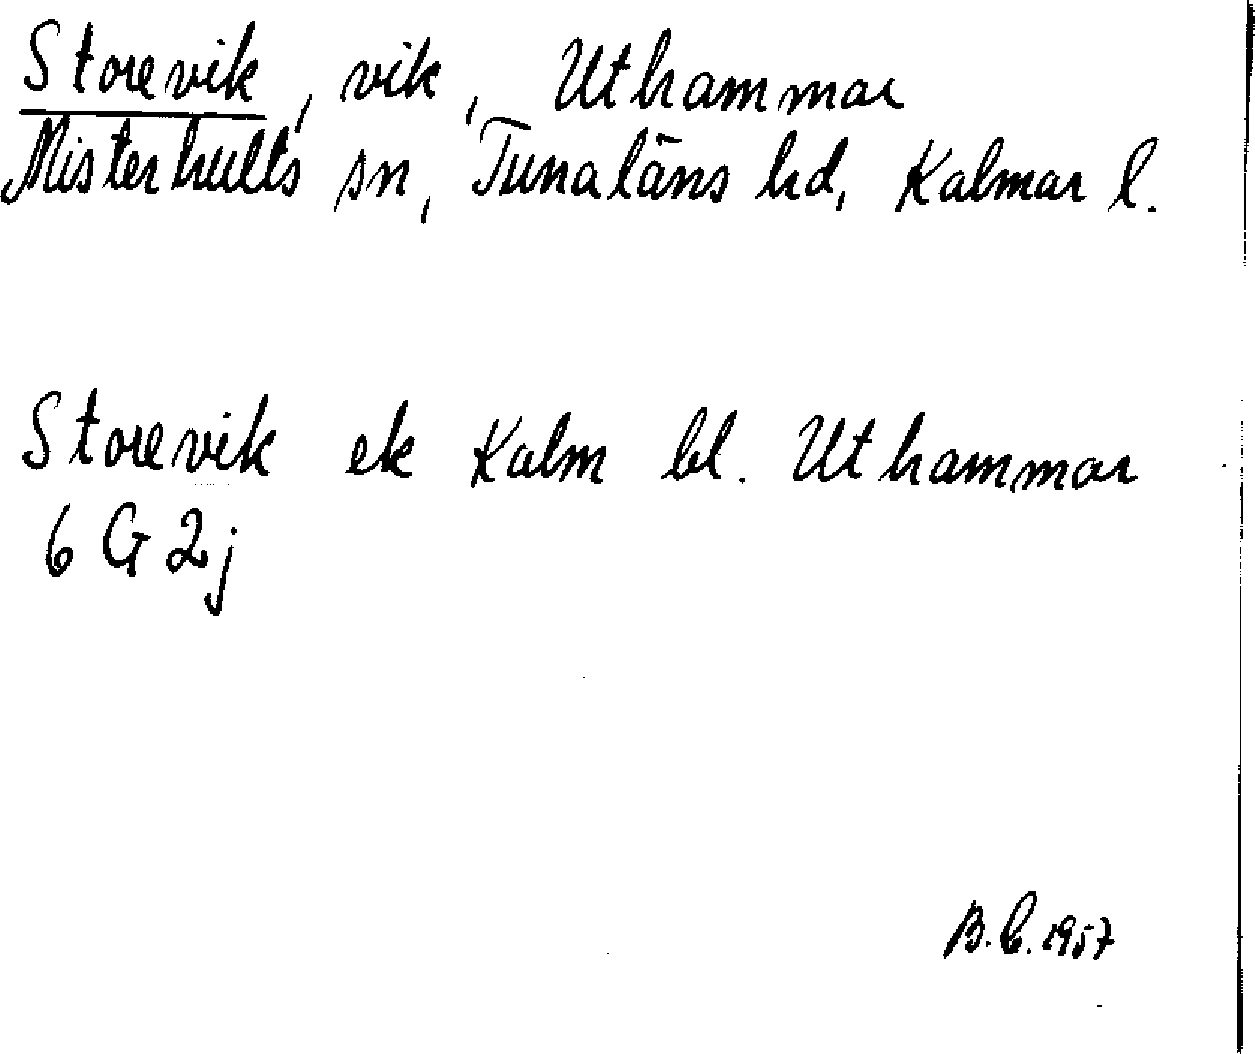 Storevik, vik, Uthammar
Misterhults sn, Tunaläns hd, Kalmar l.
Storevik ek Kalm bl. Uthammar
6 G 2j
B.C. 1957